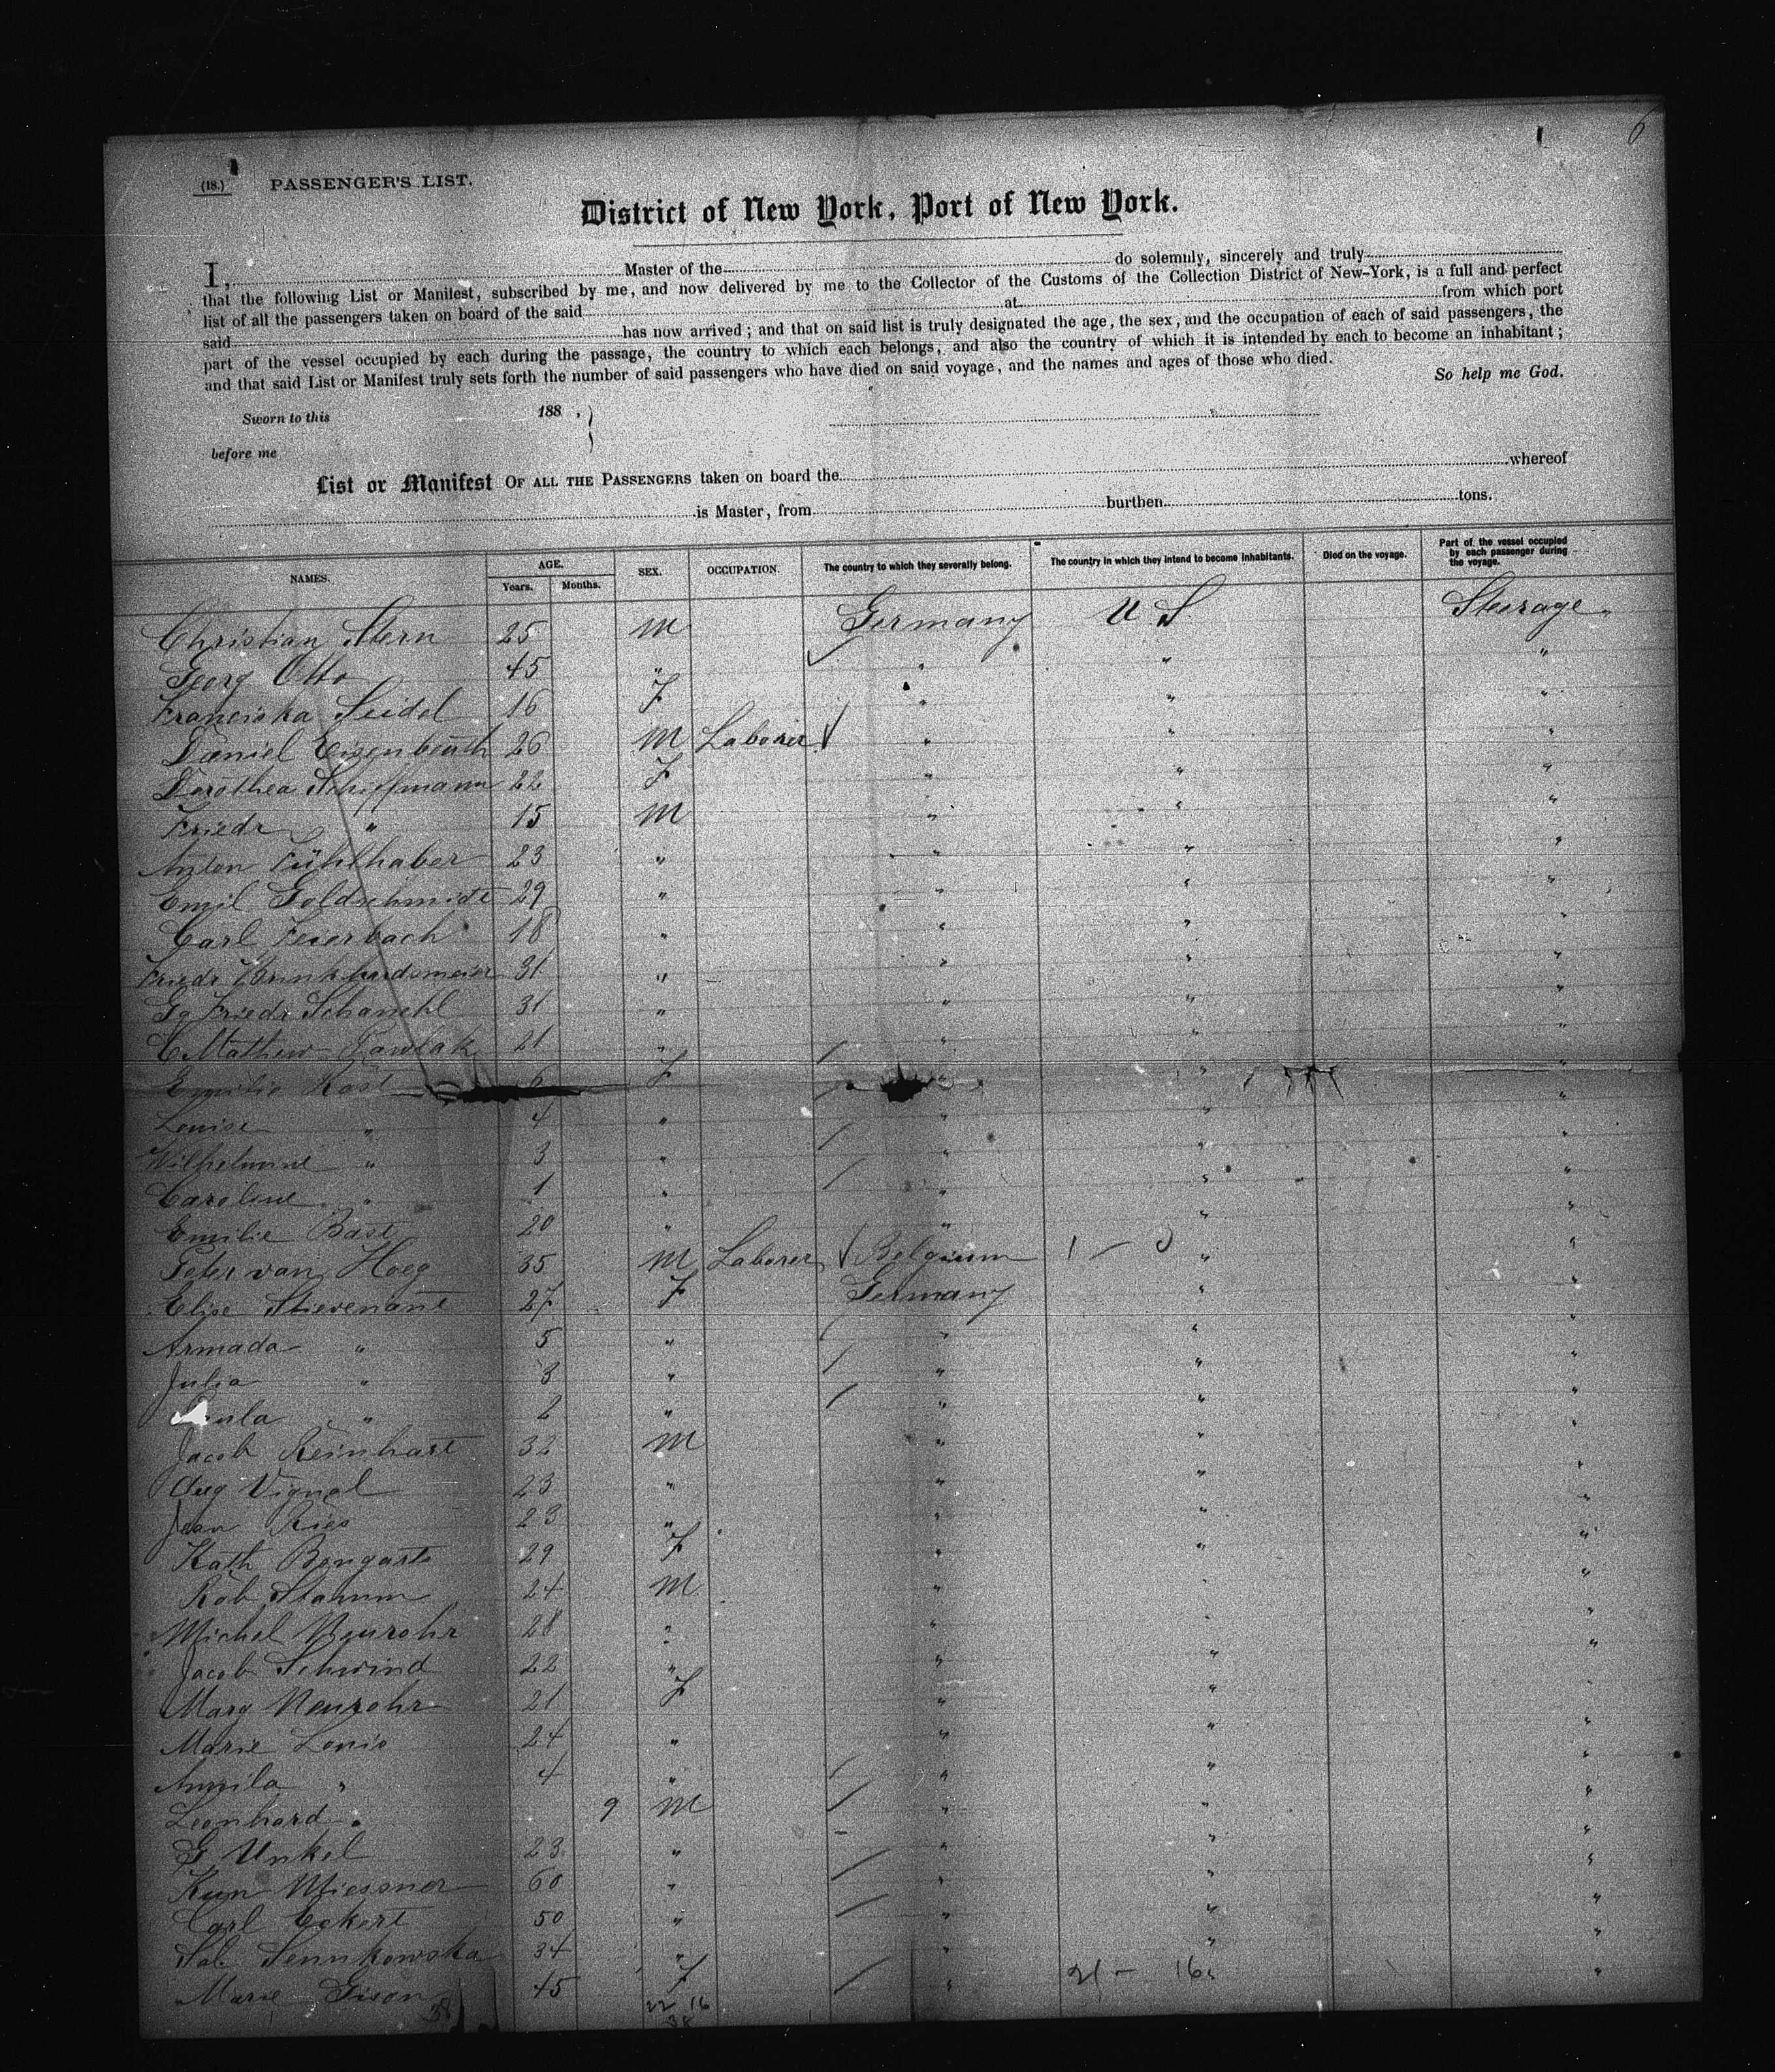 6
(18.) PASSENGER'S LIST.
District of New York, Port of New York.
I, Master of the do solemnly, sincerely and truly
that the following List or Manifest, subscribed by me, and now delivered by me to the Collector of the Customs of the Collection District of New-York, is a full and perfect
list of all the passengers taken on board of the said at from which port
said has now arrived; and that on said list is truly designated the age, the sex, and the occupation of each of said passengers, the
part of the vessel occupied by each during the passage, the country to which each belongs, and also the country of which it is intended by each to become an inhabitant;
and that said List or Manifest truly sets forth the number of said passengers who have died on said voyage, and the names and ages of those who died.
So help me God.
Sworn to this 188 ,
before me
List or Manifest OF ALL THE PASSENGERS taken on board the whereof
is Master, from burthen tons.
NAMES. AGE. Years. Months. SEX. OCCUPATION. The country to which they severally belong. The country in which they intend to become inhabitants. Died on the voyage. Part of the vessel occupied by each passenger during the voyage.
Christian Stern 25 M Germany U S. Steerage
Georg Otto 45 " " " "
Franciska Seidel 16 F " " "
Daniel Eisenbeuth 26 M Laborer " " "
Dorothea Schiffmann 22 F " " "
Friedr " 15 M " " "
Anton Fühlhaber 23 " " " "
Emil Goldschmidt 29 " " " "
Carl Feierbach 18 " " " "
Friedr 31 " " " "
Gg Friedr 31 " " " "
Mathew Pawlak 21 " " " "
Emilie Rost 6 F " " "
Louise " 4 " " " "
Wilhelmine " 3 " " " "
Caroline " 1 " " " "
Emilie Bast 20 " " " "
Peter van Hoeg 35 M Laborer Belgium 1 - 0 " "
Elise Stievenant 27 F Germany " "
Armada " 5 " " " "
Julia " 3 " " " "
" 2 " " " "
Jacob Reinhart 32 M " " "
Aug Vignal 23 " " " "
Jean Ries 23 " " " "
Kath Bongarts 29 F " " "
Rob Stamm 24 M " "
Michel Neurohr 28 " " "
Jacob Schwind 22 " " " "
Marg Neurohr 21 F " "
Marie Louis 24 " " " "
" 4 " " " "
Leonhard " 9 M " " "
G Unkel 23 " " " "
Kun Miessner 60 " " " "
Carl Eckert 50 " " " "
Sal Sennkowska 34 " " " "
Marie Gison 45 F " 21 - 16 "
38 22 16
38